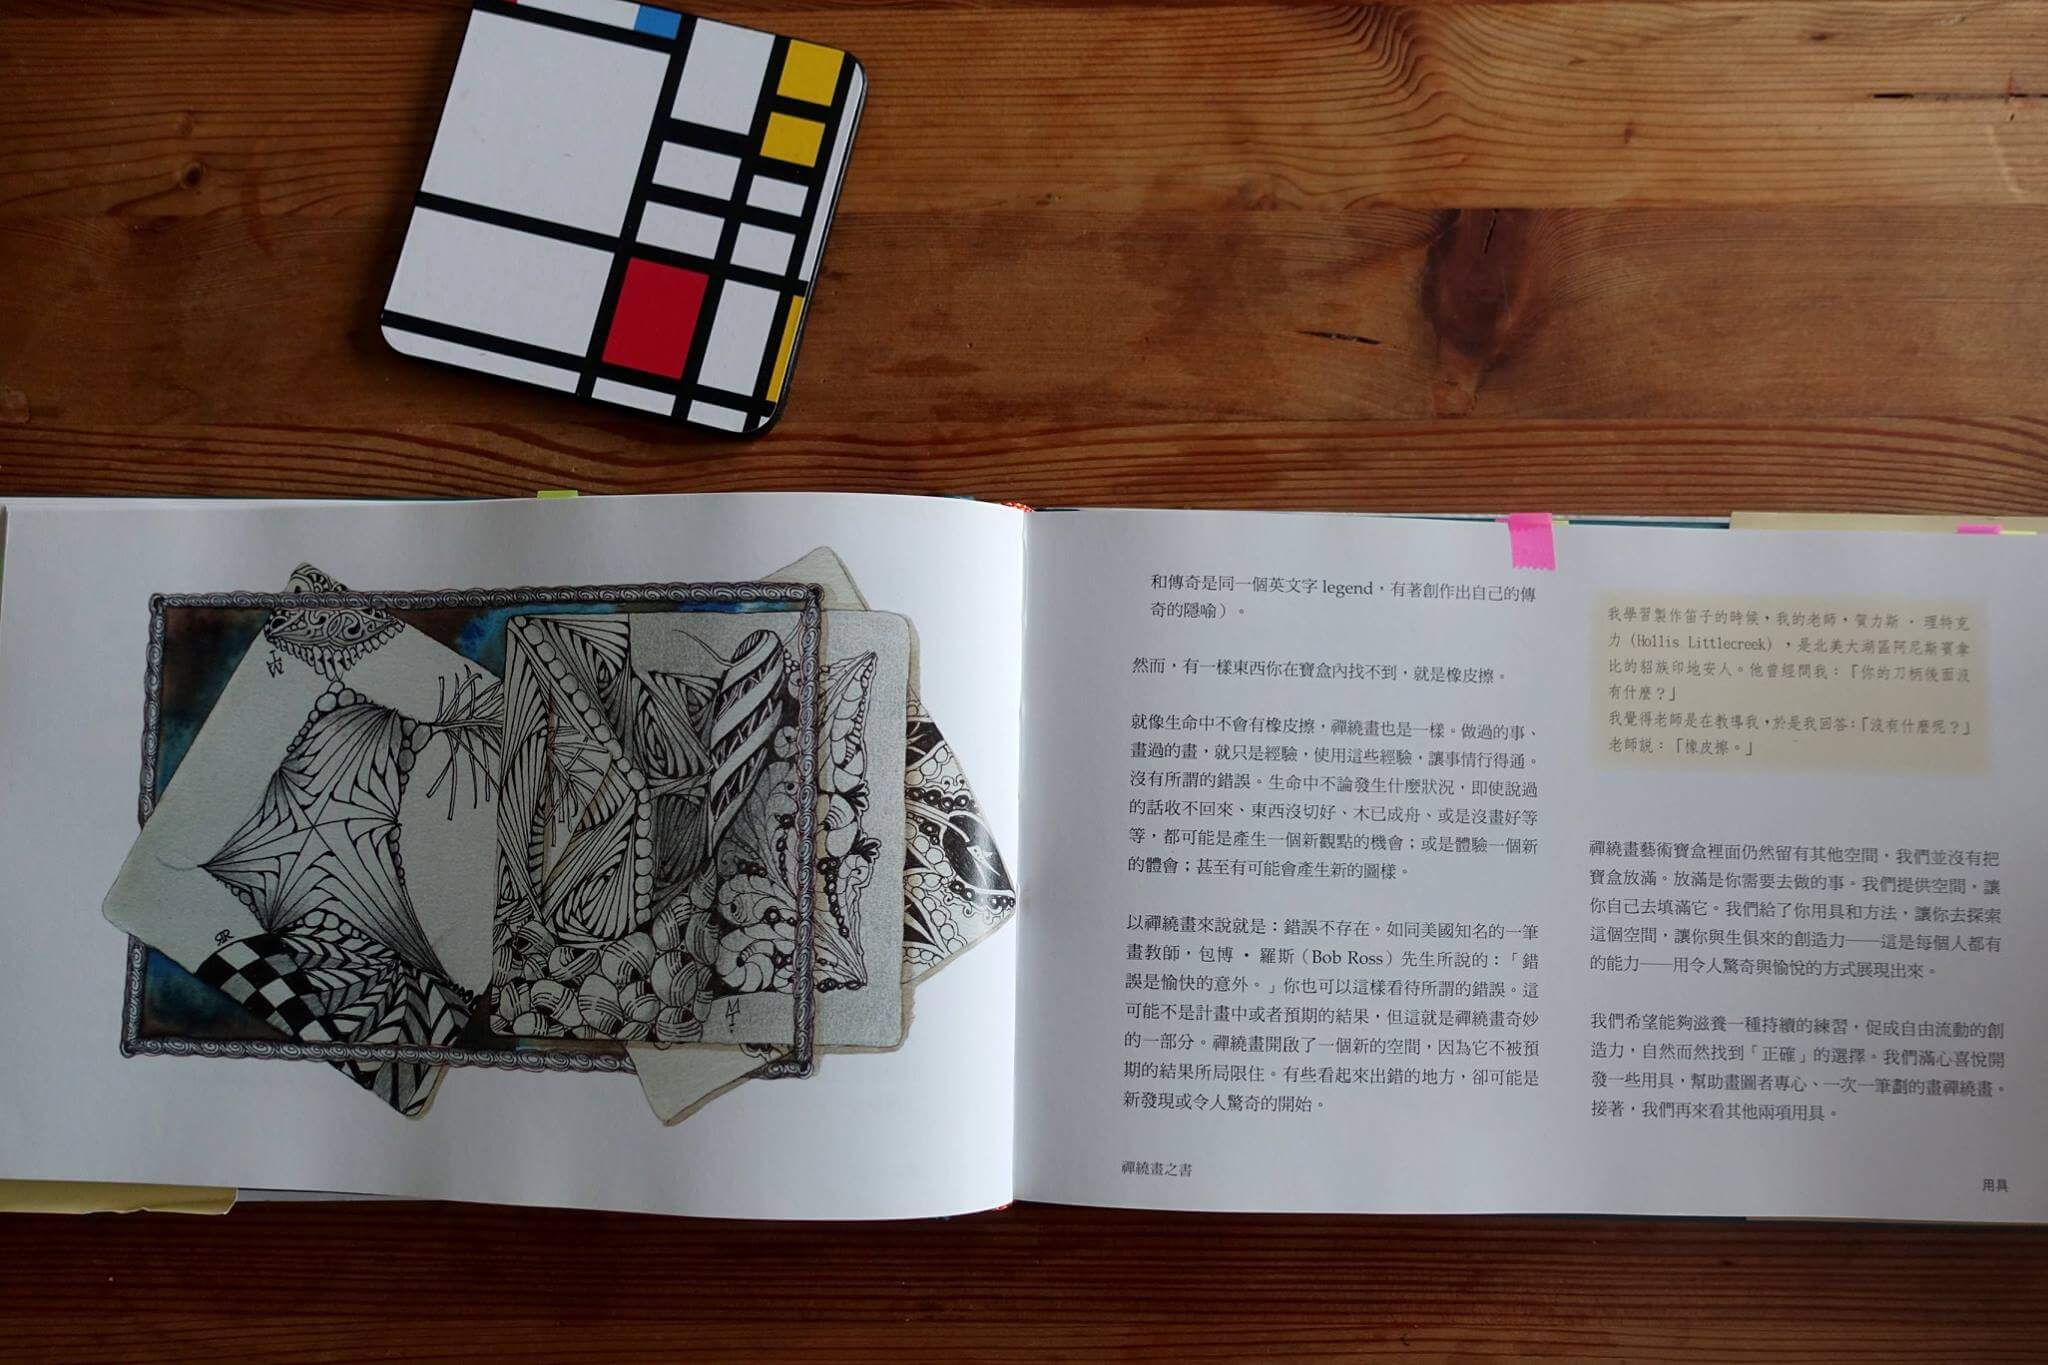 和傳奇是同一個英文字 legend，有著創作出自己的傳
奇的隱喻）。
然而，有一樣東西你在寶盒內找不到，就是橡皮擦。
就像生命中不會有橡皮擦，禪繞畫也是一樣。做過的事、
畫過的畫，就只是經驗，使用這些經驗，讓事情行得通。
沒有所謂的錯誤。生命中不論發生什麼狀況，即使說過
的話收不回來、東西沒切好、木已成舟、或是沒畫好等
等，都可能是產生一個新觀點的機會；或是體驗一個新
的體會；甚至有可能會產生新的圖樣。
以禪繞畫來說就是：錯誤不存在。如同美國知名的一筆
畫教師，包博・羅斯（Bob Ross）先生所說的：「錯
誤是愉快的意外。」你也可以這樣看待所謂的錯誤。這
可能不是計畫中或者預期的結果，但這就是禪繞畫奇妙
的一部分。禪繞畫開啟了一個新的空間，因為它不被預
期的結果所局限住。有些看起來出錯的地方，卻可能是
新發現或令人驚奇的開始。
禪繞畫之書
我學習製作笛子的時候，我的老師，賀力斯・理特克
力（Hollis Littlecreek），是北美大湖區阿尼斯賓拿
比的貂族印地安人。他曾經問我：「你的刀柄後面沒
有什麼？」
我覺得老師是在教導我，於是我回答：「沒有什麼呢？」
老師說：「橡皮擦。」
禪繞畫藝術寶盒裡面仍然留有其他空間，我們並沒有把
寶盒放滿。放滿是你需要去做的事。我們提供空間，讓
你自己去填滿它。我們給了你用具和方法，讓你去探索
這個空間，讓你與生俱來的創造力——這是每個人都有
的能力——用令人驚奇與愉悅的方式展現出來。
我們希望能夠滋養一種持續的練習，促成自由流動的創
造力，自然而然找到「正確」的選擇。我們滿心喜悅開
發一些用具，幫助畫圖者專心、一次一筆劃的畫禪繞畫。
接著，我們再來看其他兩項用具。
用具